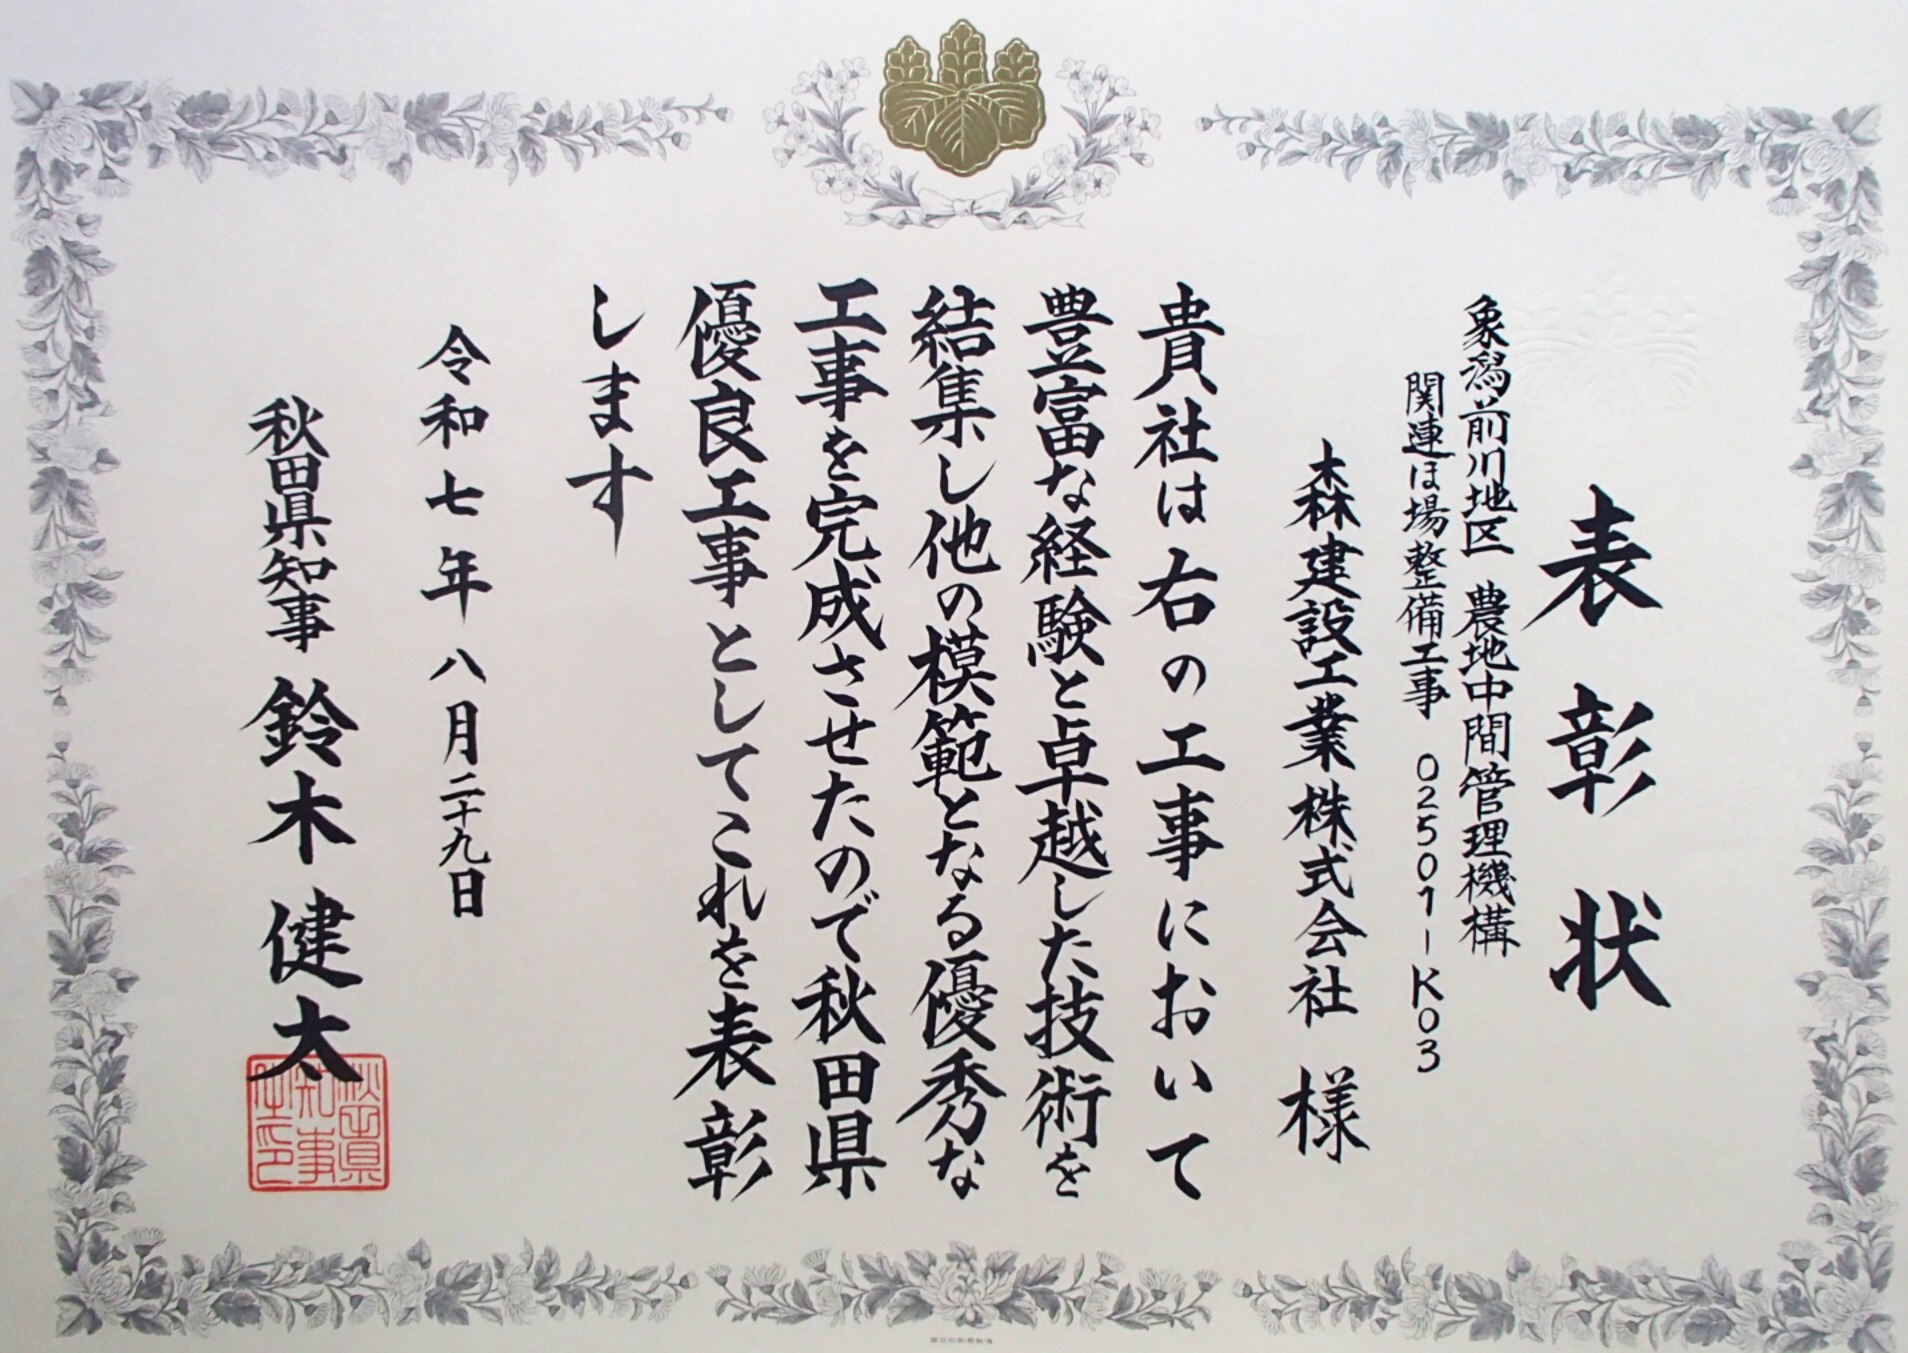 表彰状
象潟前川地区 農地中間管理機構
関連ほ場整備工事 02501-K03
森建設工業株式会社 様
貴社は右の工事において
豊富な経験と卓越した技術を
結集し他の模範となる優秀な
工事を完成させたので秋田県
優良工事としてこれを表彰
します
令和七年八月二十九日
秋田県知事 鈴木健太
秋田県知事之印